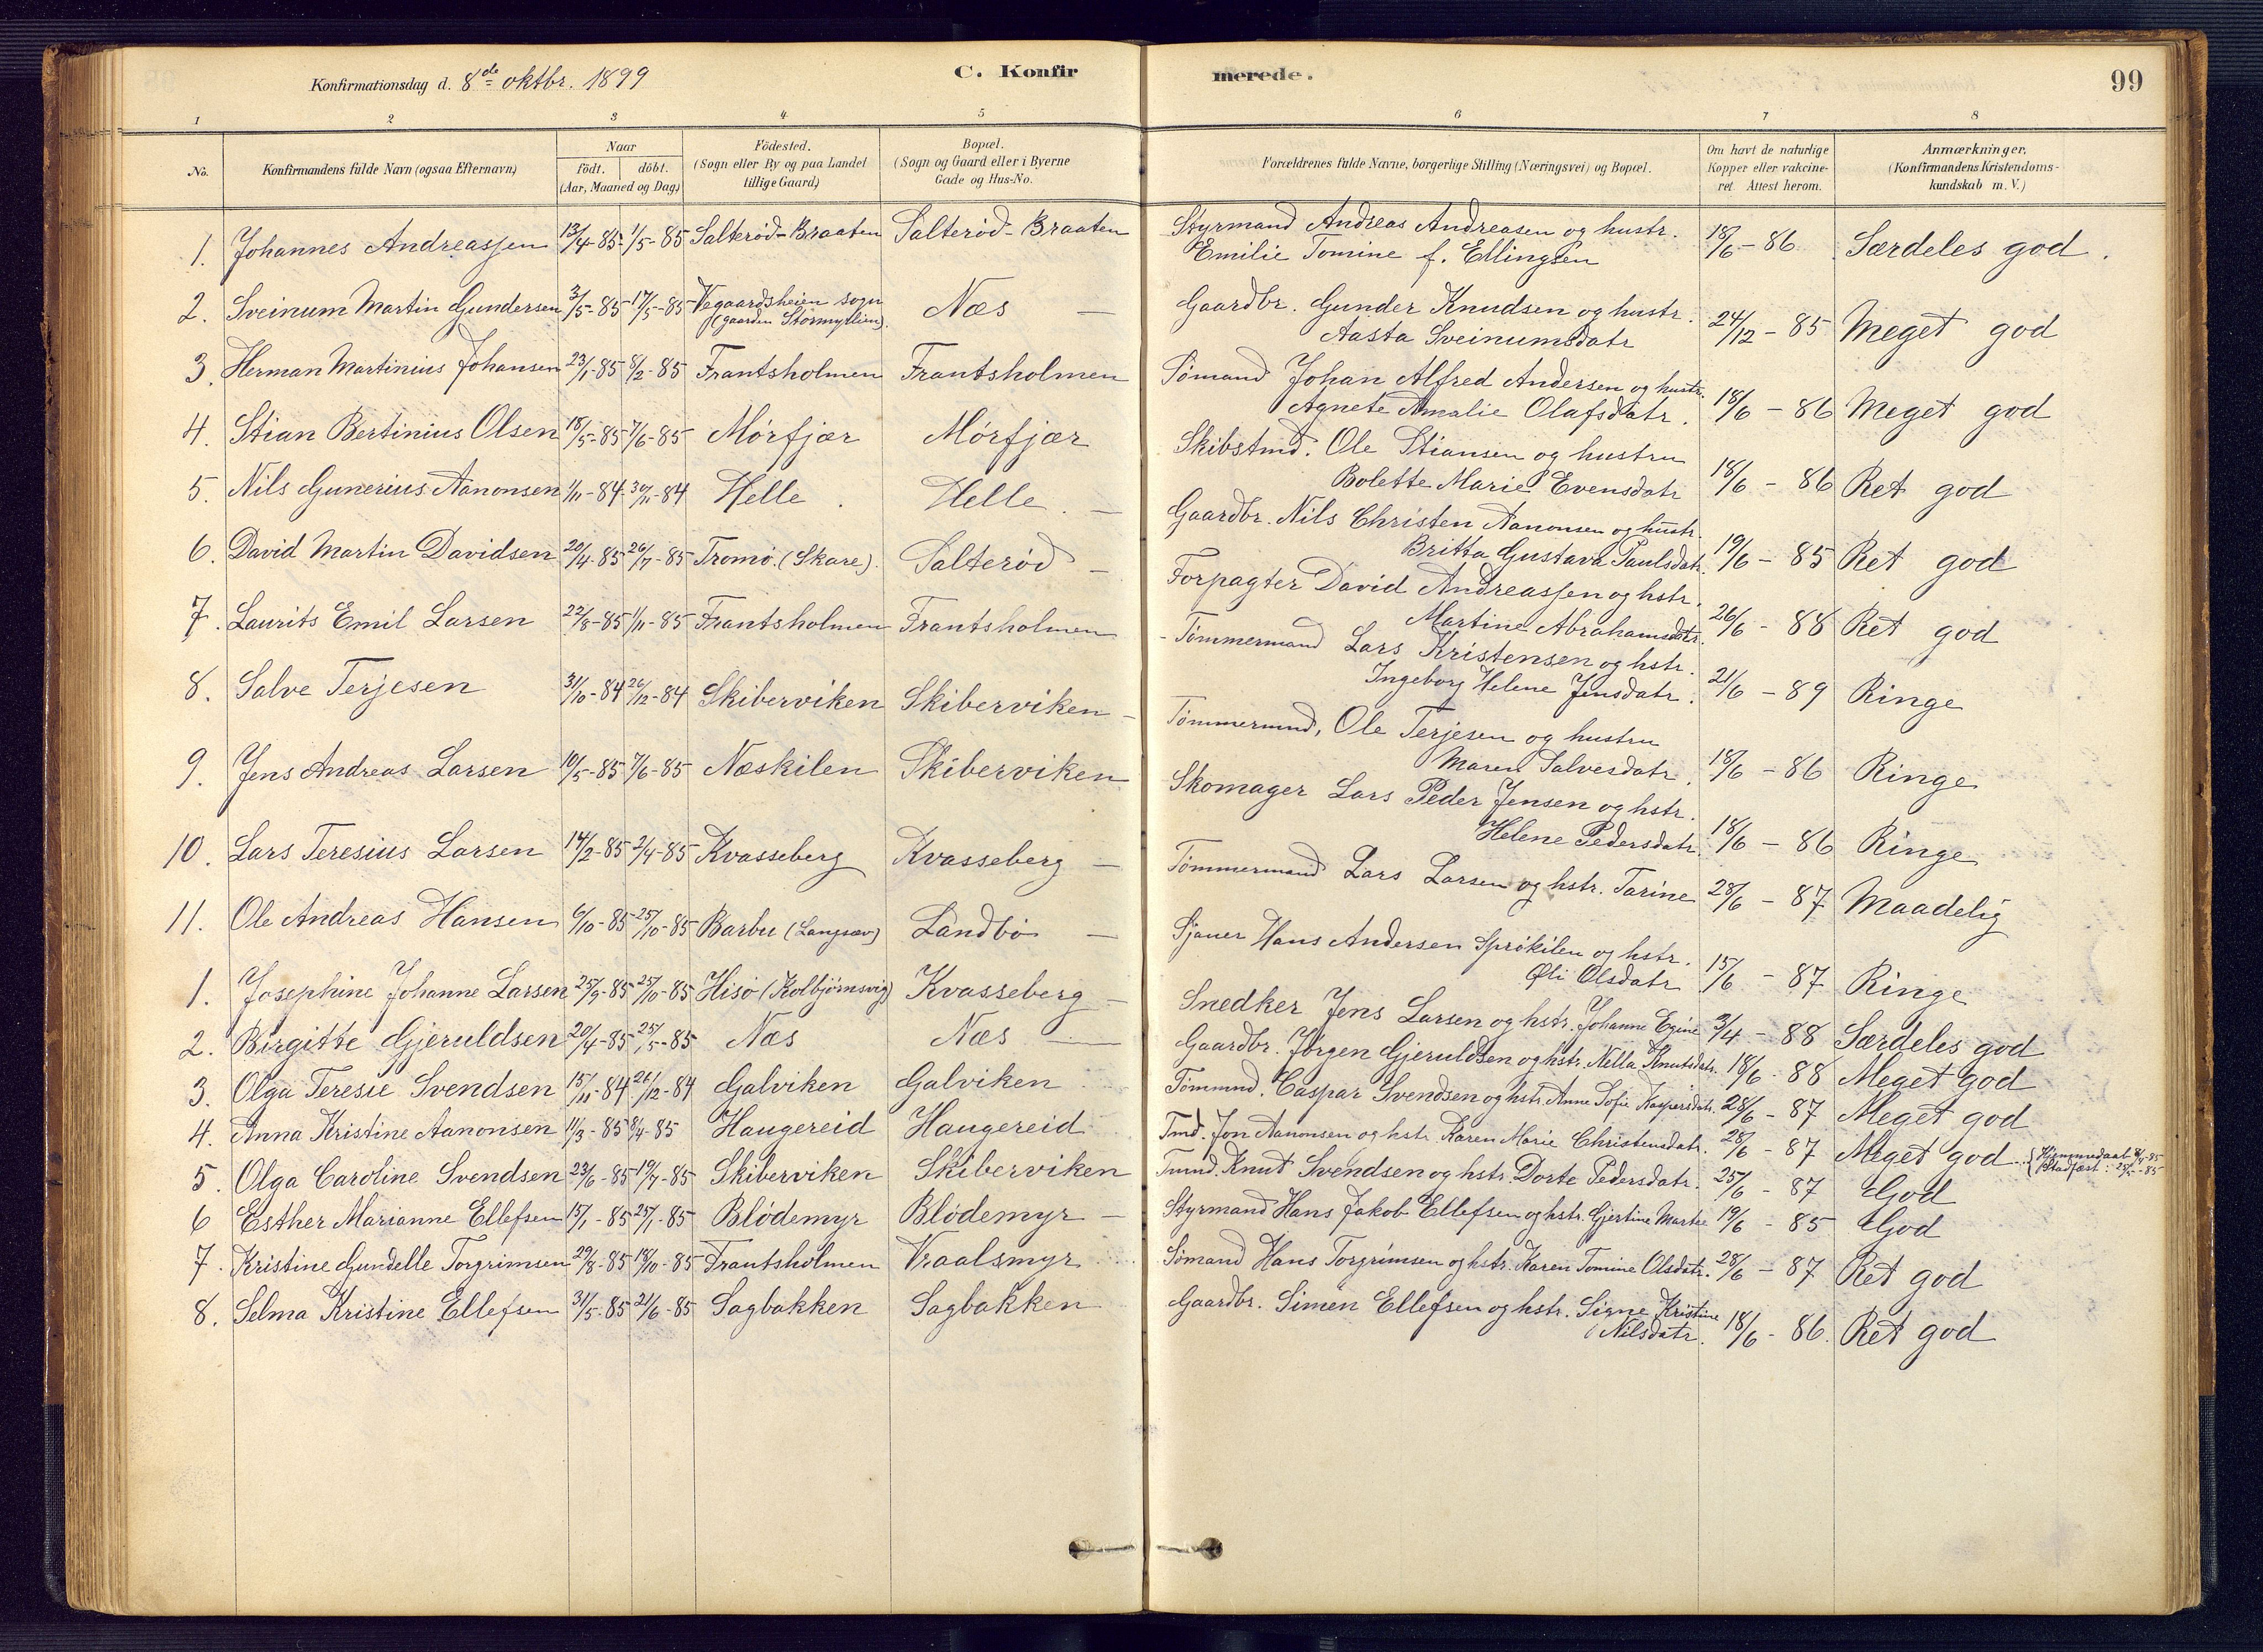 Konfirmationsdag d. 8de oktbr. 1899
C. Konfirmerede.
99
1 2 3 4 5 6 7 8
No.
Konfirmandens fulde Navn (ogsaa Efternavn)
Naar
Födt. döbt.
(Aar, Maaned og Dag.)
Födested.
(Sogn eller By og paa Landet
tillige Gaard.)
Bopæl.
(Sogn og Gaard eller i Byerne
Gade og Hus-No.
Forældrenes fulde Navne, borgerlige Stilling (Næringsvei) og Bopæl.
Om havt de naturlige
Kopper eller vakcine-
ret. Attest herom.
Anmærkninger.
(Konfirmandens Kristendoms-
kundskab m. V.)
1. Johannes Andreassen 13/4-85 1/5-85 Salterød-Braaten Salterød-Braaten Styrmand Andreas Andreasen og hustr.
Emilie Tomine f. Ellingsen 18/6-86 Særdeles god.
2. Sveinum Martin Gundersen 3/5-85 17/5-85 Vegaardsheien sogn
(gaarden Stormyrlien). Næs — Gaardbr. Gunder Knudsen og hustr.
Aasta Sveinumsdatr 24/12-85 Meget god
3. Herman Martinius Johansen 23/1-85 8/2-85 Frantsholmen Frantsholmen Sømand Johan Alfred Andersen og hustr.
Agnete Amalie Olafsdatr. 18/6-86 Meget god
4. Stian Bertinius Olsen 18/5-85 7/6-85 Mørfjær Mørfjær Skibstmd. Ole Stiansen og hustru
Bolette Marie Evensdatr 18/6-86 Ret god
5. Nils Gunerius Aanonsen 1/11-84 30/11-84 Helle. Helle. — Gaardbr. Nils Christen Aanonsen og hustr.
Britta Gustava Paulsdatr. 19/6-85 Ret god
6. David Martin Davidsen 20/4-85 26/7-85 Tromø. (Skare). Salterød — Forpagter David Andreassen og hstr.
Martine Abrahamsdatr. 26/6-88 Ret god
7. Laurits Emil Larsen 22/8-85 1/11-85 Frantsholmen Frantsholmen - Tømmermand Lars Kristensen og hstr.
Ingeborg Helene Jensdatr. 21/6-89 Ringe
8. Salve Terjesen 31/10-84 26/12-84 Skiberviken Skiberviken — Tømmermnd, Ole Terjesen og hustru
Maren Salvesdatr. 18/6-86 Ringe
9. Jens Andreas Larsen 10/5-85 7/6-85 Næskilen Skiberviken Skomager Lars Peder Jensen og hstr.
Helene Pedersdatr. 18/6-86 Ringe
10. Lars Teresius Larsen 14/2-85 2/4-85 Kvasseberg Kvasseberg — Tømmermand Lars Larsen og hstr. Tarine 28/6-87 Maadelig
11. Ole Andreas Hansen 6/10-85 25/10-85 Barbu (Langsæv) Landbø — Sjauer Hans Andersen Sprøkilen og hstr.
Oli Olsdatr 15/6-87 Ringe
1. Josephine Johanne Larsen 25/9-85 25/10-85 Hisø (Kolbjørnsvig) Kvasseberg — Snedker Jens Larsen og hstr. Johanne Egine 3/4-88 Særdeles god
2. Birgitte Gjeruldsen 20/4-85 25/5-85 Næs Næs — Gaardbr. Jørgen Gjeruldsen og hstr. Nella Knutsdatr. 18/6-88 Meget god
3. Olga Teresie Svendsen 15/11-84 26/12-84 Galviken Galviken Tømmmd. Caspar Svendsen og hstr. Anne Sofie Kaspersdatr. 28/6-87 Meget god
4. Anna Kristine Aanonsen 11/3-85 8/4-85 Haugereid Haugereid Tmd. Jon Aanonsen og hstr. Karen Marie Christensdatr. 28/6-87 Meget god {Hjemmedaab -85
Stadfæst: -85
5. Olga Caroline Svendsen 23/6-85 19/7-85 Skiberviken Skiberviken Tmmd. Knut Svendsen og hstr. Dorte Pedersdatr. 25/6-87 God
6 Esther Marianne Ellefsen 15/1-85 25/1-85 Blødemyr Blødemyr — Styrmand Hans Jakob Ellefsen og hstr. Gjertine Martee 19/6-85 God
7. Kristine Gundelle Torgrimsen 29/8-85 18/10-85 Frantsholmen Vraalsmyr Sømand Hans Torgrimsen og hstr. Karen Tomine Olsdatr. 28/6-87 Ret god
8. Selma Kristine Ellefsen 31/5-85 21/6-85 Sagbakken Sagbakken Gaardbr. Simen Ellefsen og hstr. Signe Kristine
Nilsdatr. 18/6-86. Ret god